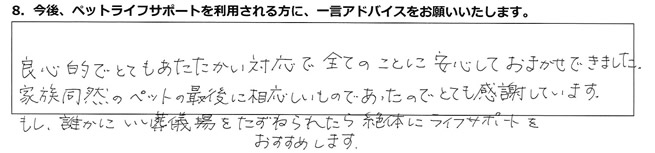 8. 今後、ペットライフサポートを利用される方に、一言アドバイスをお願いいたします。
良心的でとてもあたたかい対応で全てのことに安心しておまかせできました.
家族同然のペットの最後に相応しいものであったのでとても感謝しています.
もし、誰かにいい葬儀場をたずねられたら絶体にライフサポートを
おすすめします.